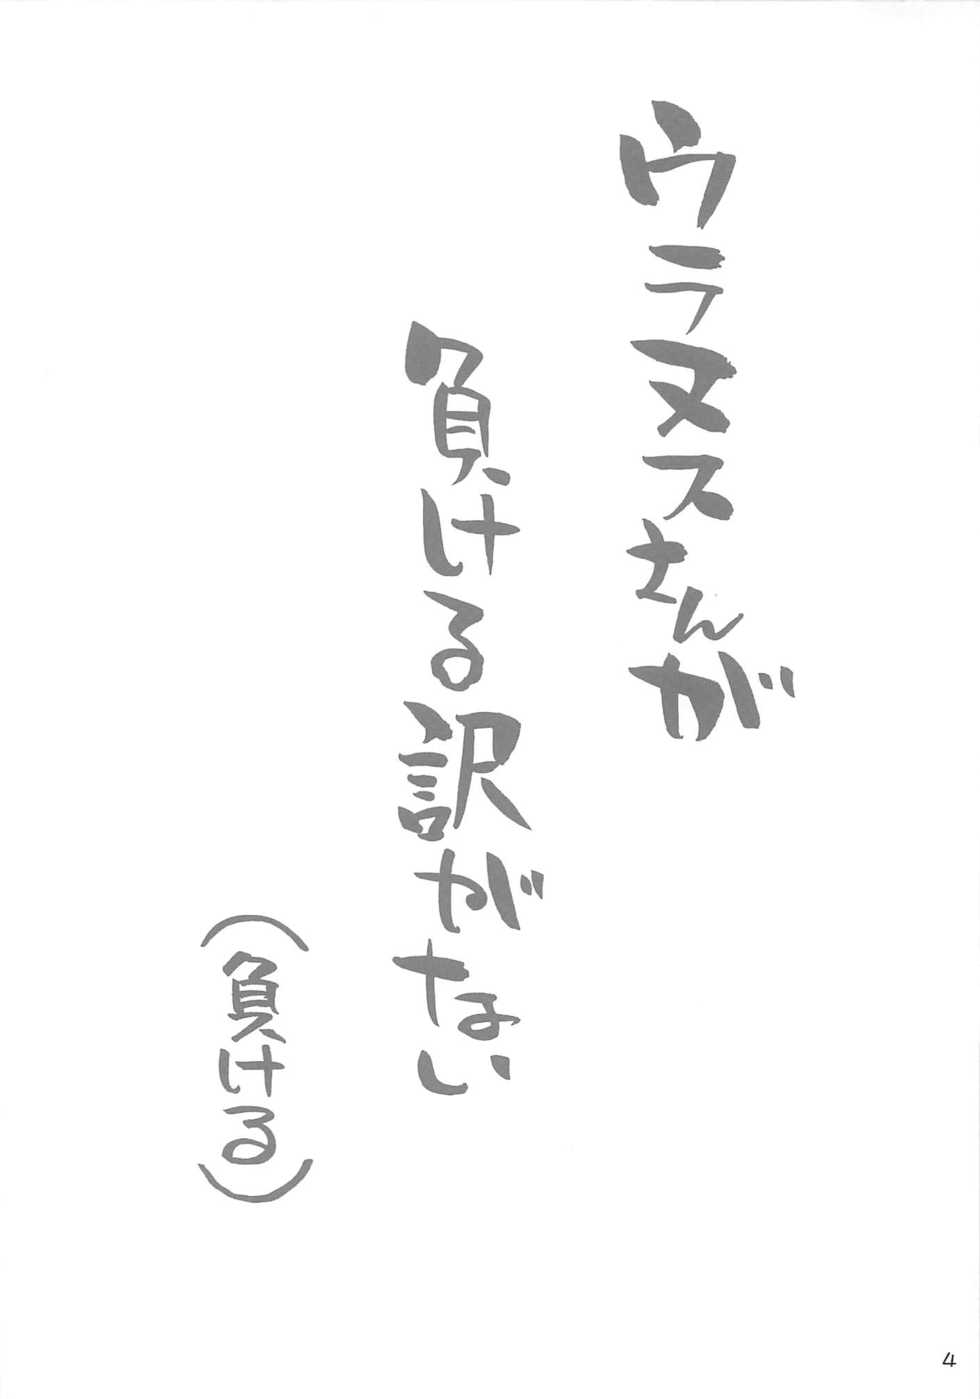 ウラヌスさんが
負ける訳がない
（負ける）
4